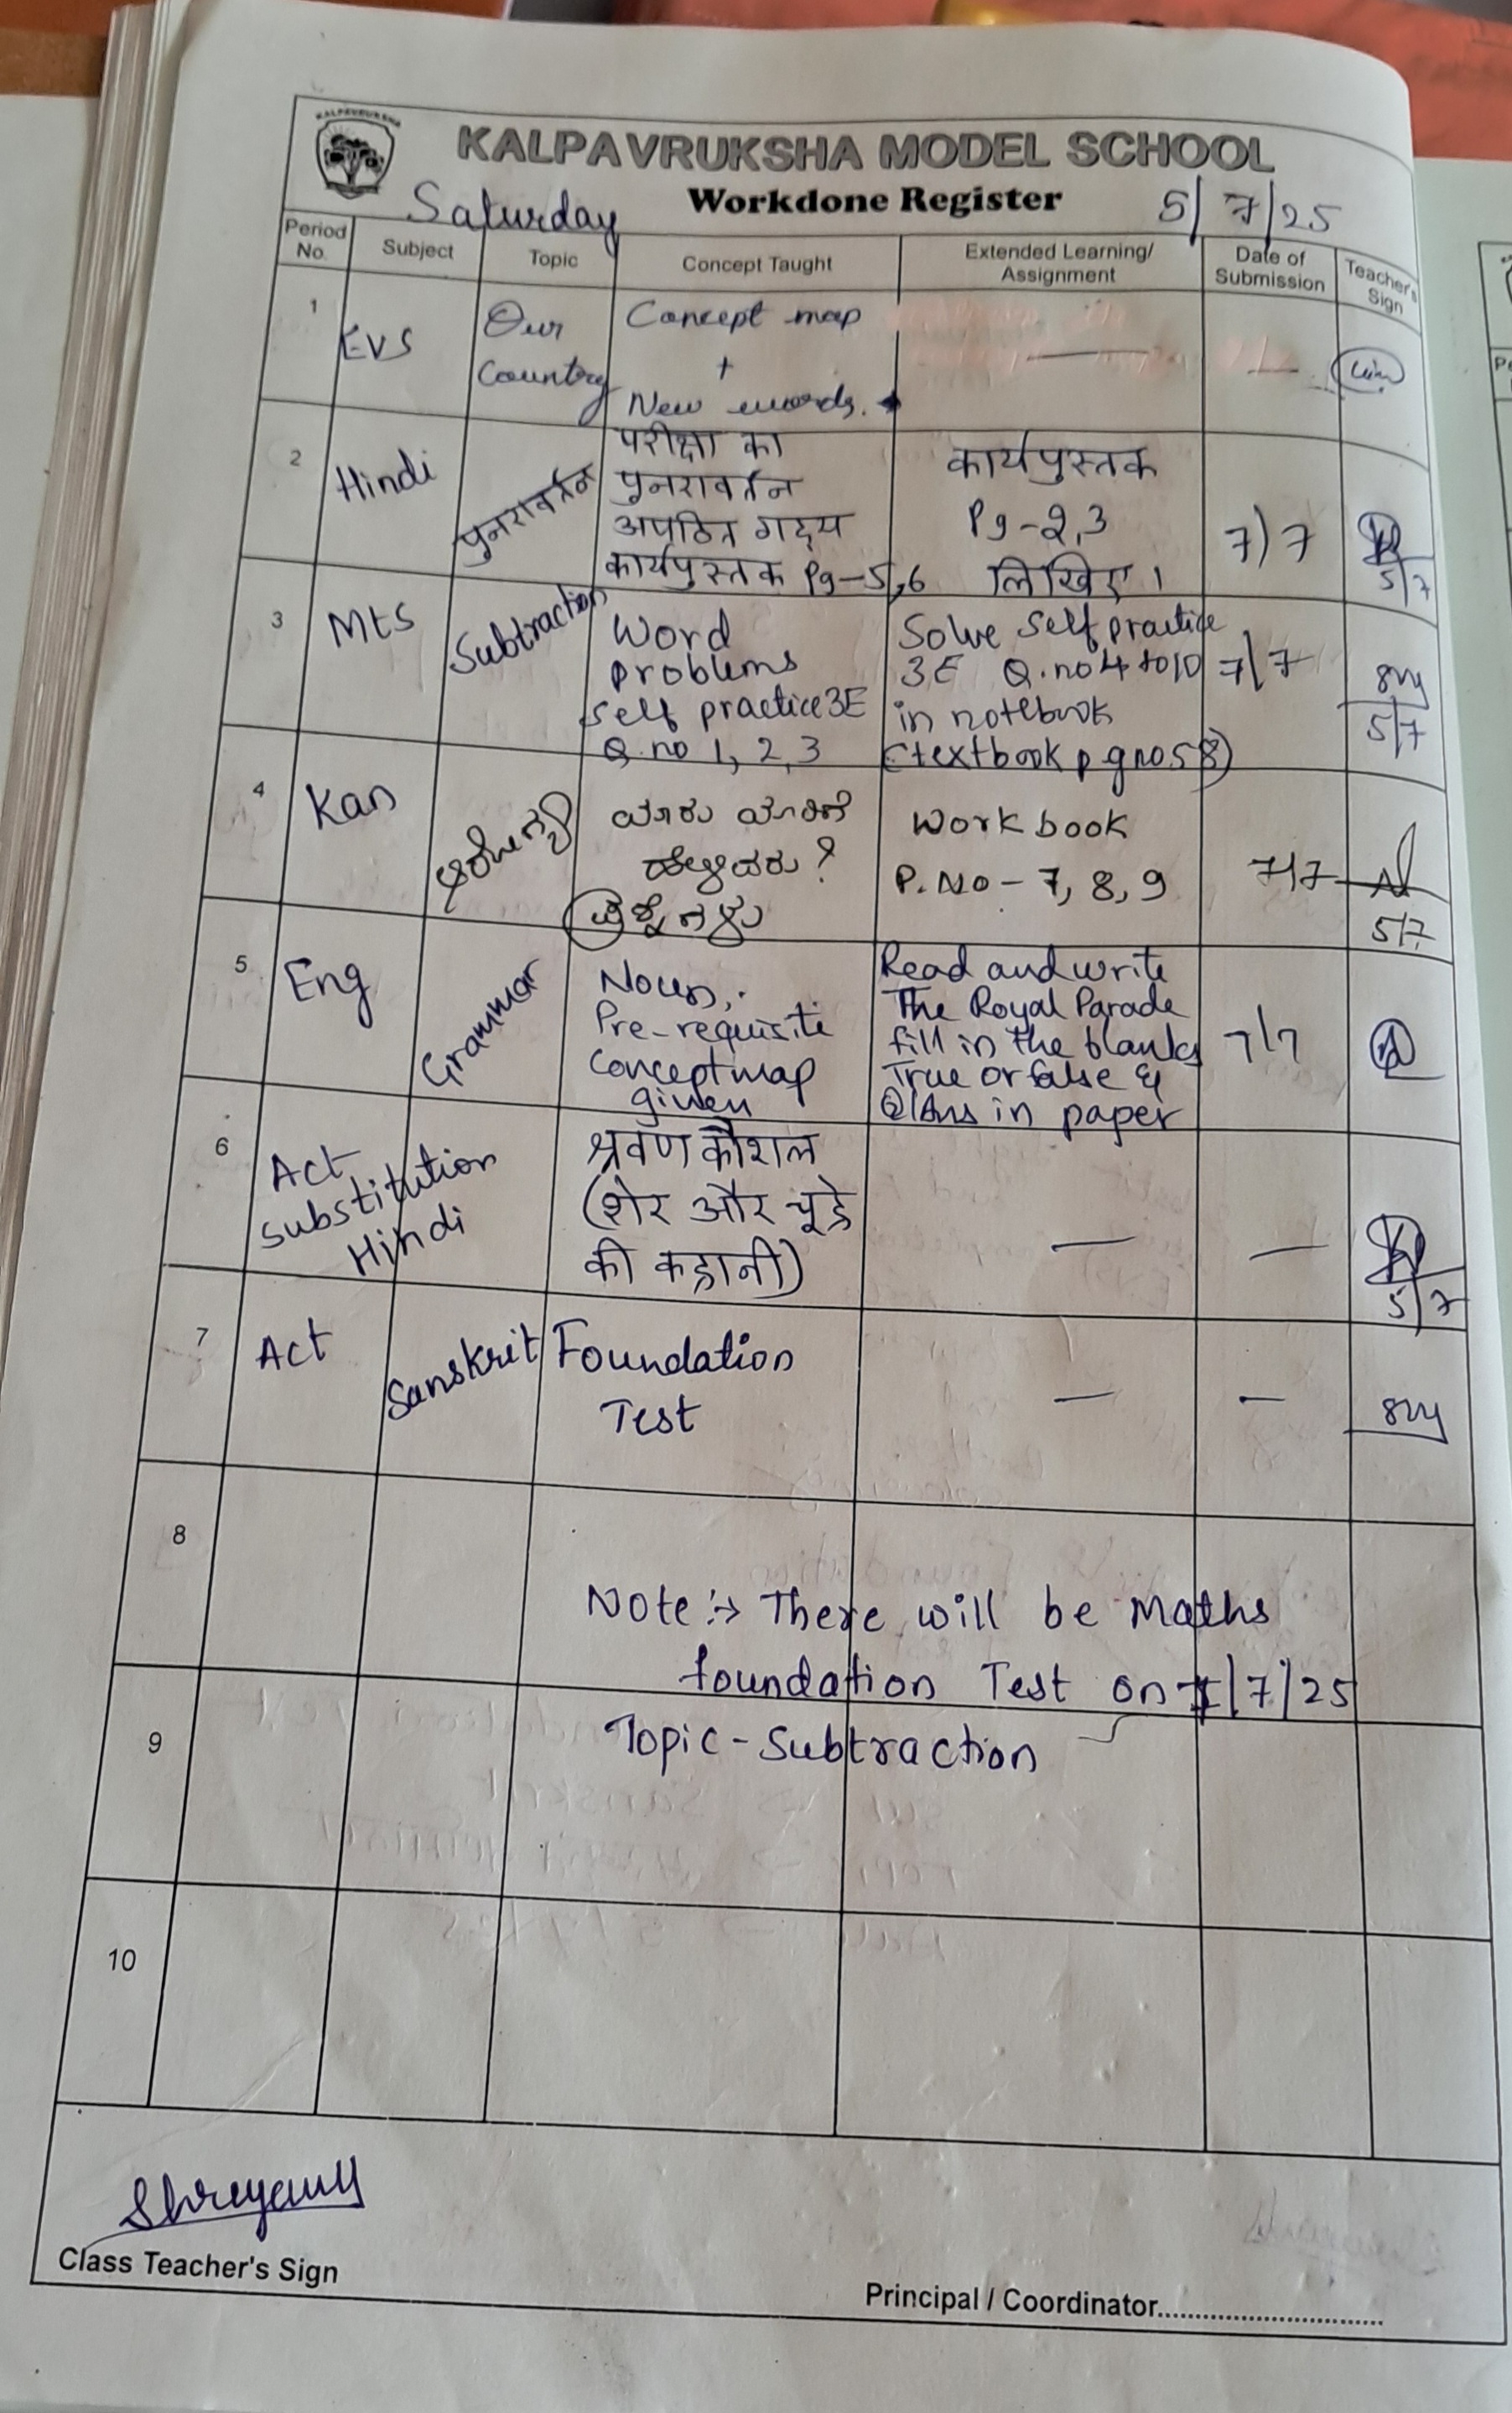 KALPAVRUKSHA
KALPAVRUKSHA MODEL SCHOOL
Saturday
Workdone Register
5/7/25
Period No.
Subject
Topic
Concept Taught
Extended Learning/ Assignment
Date of Submission
Teacher's Sign
1
EVS
Our
Country
Concept map
+
New words.
—
—
2
Hindi
पुनरावर्तन
परीक्षा का
पुनरावर्तन
अपठित गद्य
कार्यपुस्तक Pg-5,6
कार्यपुस्तक
Pg-2,3
लिखिए।
7/7
5/7
3
Mts
Subtraction
Word
problems
self practice 3E
Q.no 1, 2, 3
Solve Self practice
3E Q.no 4 to 10
in notebook
(textbook pg no 58)
7/7
5/7
4
Kan
ಯಾರು ಯಾರಿಗೆ
ಹೇಳಿದರು?
ಪ್ರಶ್ನೆಗಳು
Work book
P.No - 7, 8, 9
7/7
5/7
5
Eng
Grammar
Noun,.
Pre-requisite
Concept map
given
Read and write
The Royal Parade
fill in the blanks
True or false &
Q/Ans in paper
7/7
6
Act
substitution
Hindi
श्रवण कौशल
(शेर और चूहे
की कहानी)
—
—
5/7
7
Act
Sanskrit
Foundation
Test
—
—
8
Note :→ There will be Maths
foundation Test on /7/25
9
Topic - Subtraction
10
Class Teacher's Sign
Principal / Coordinator..............................